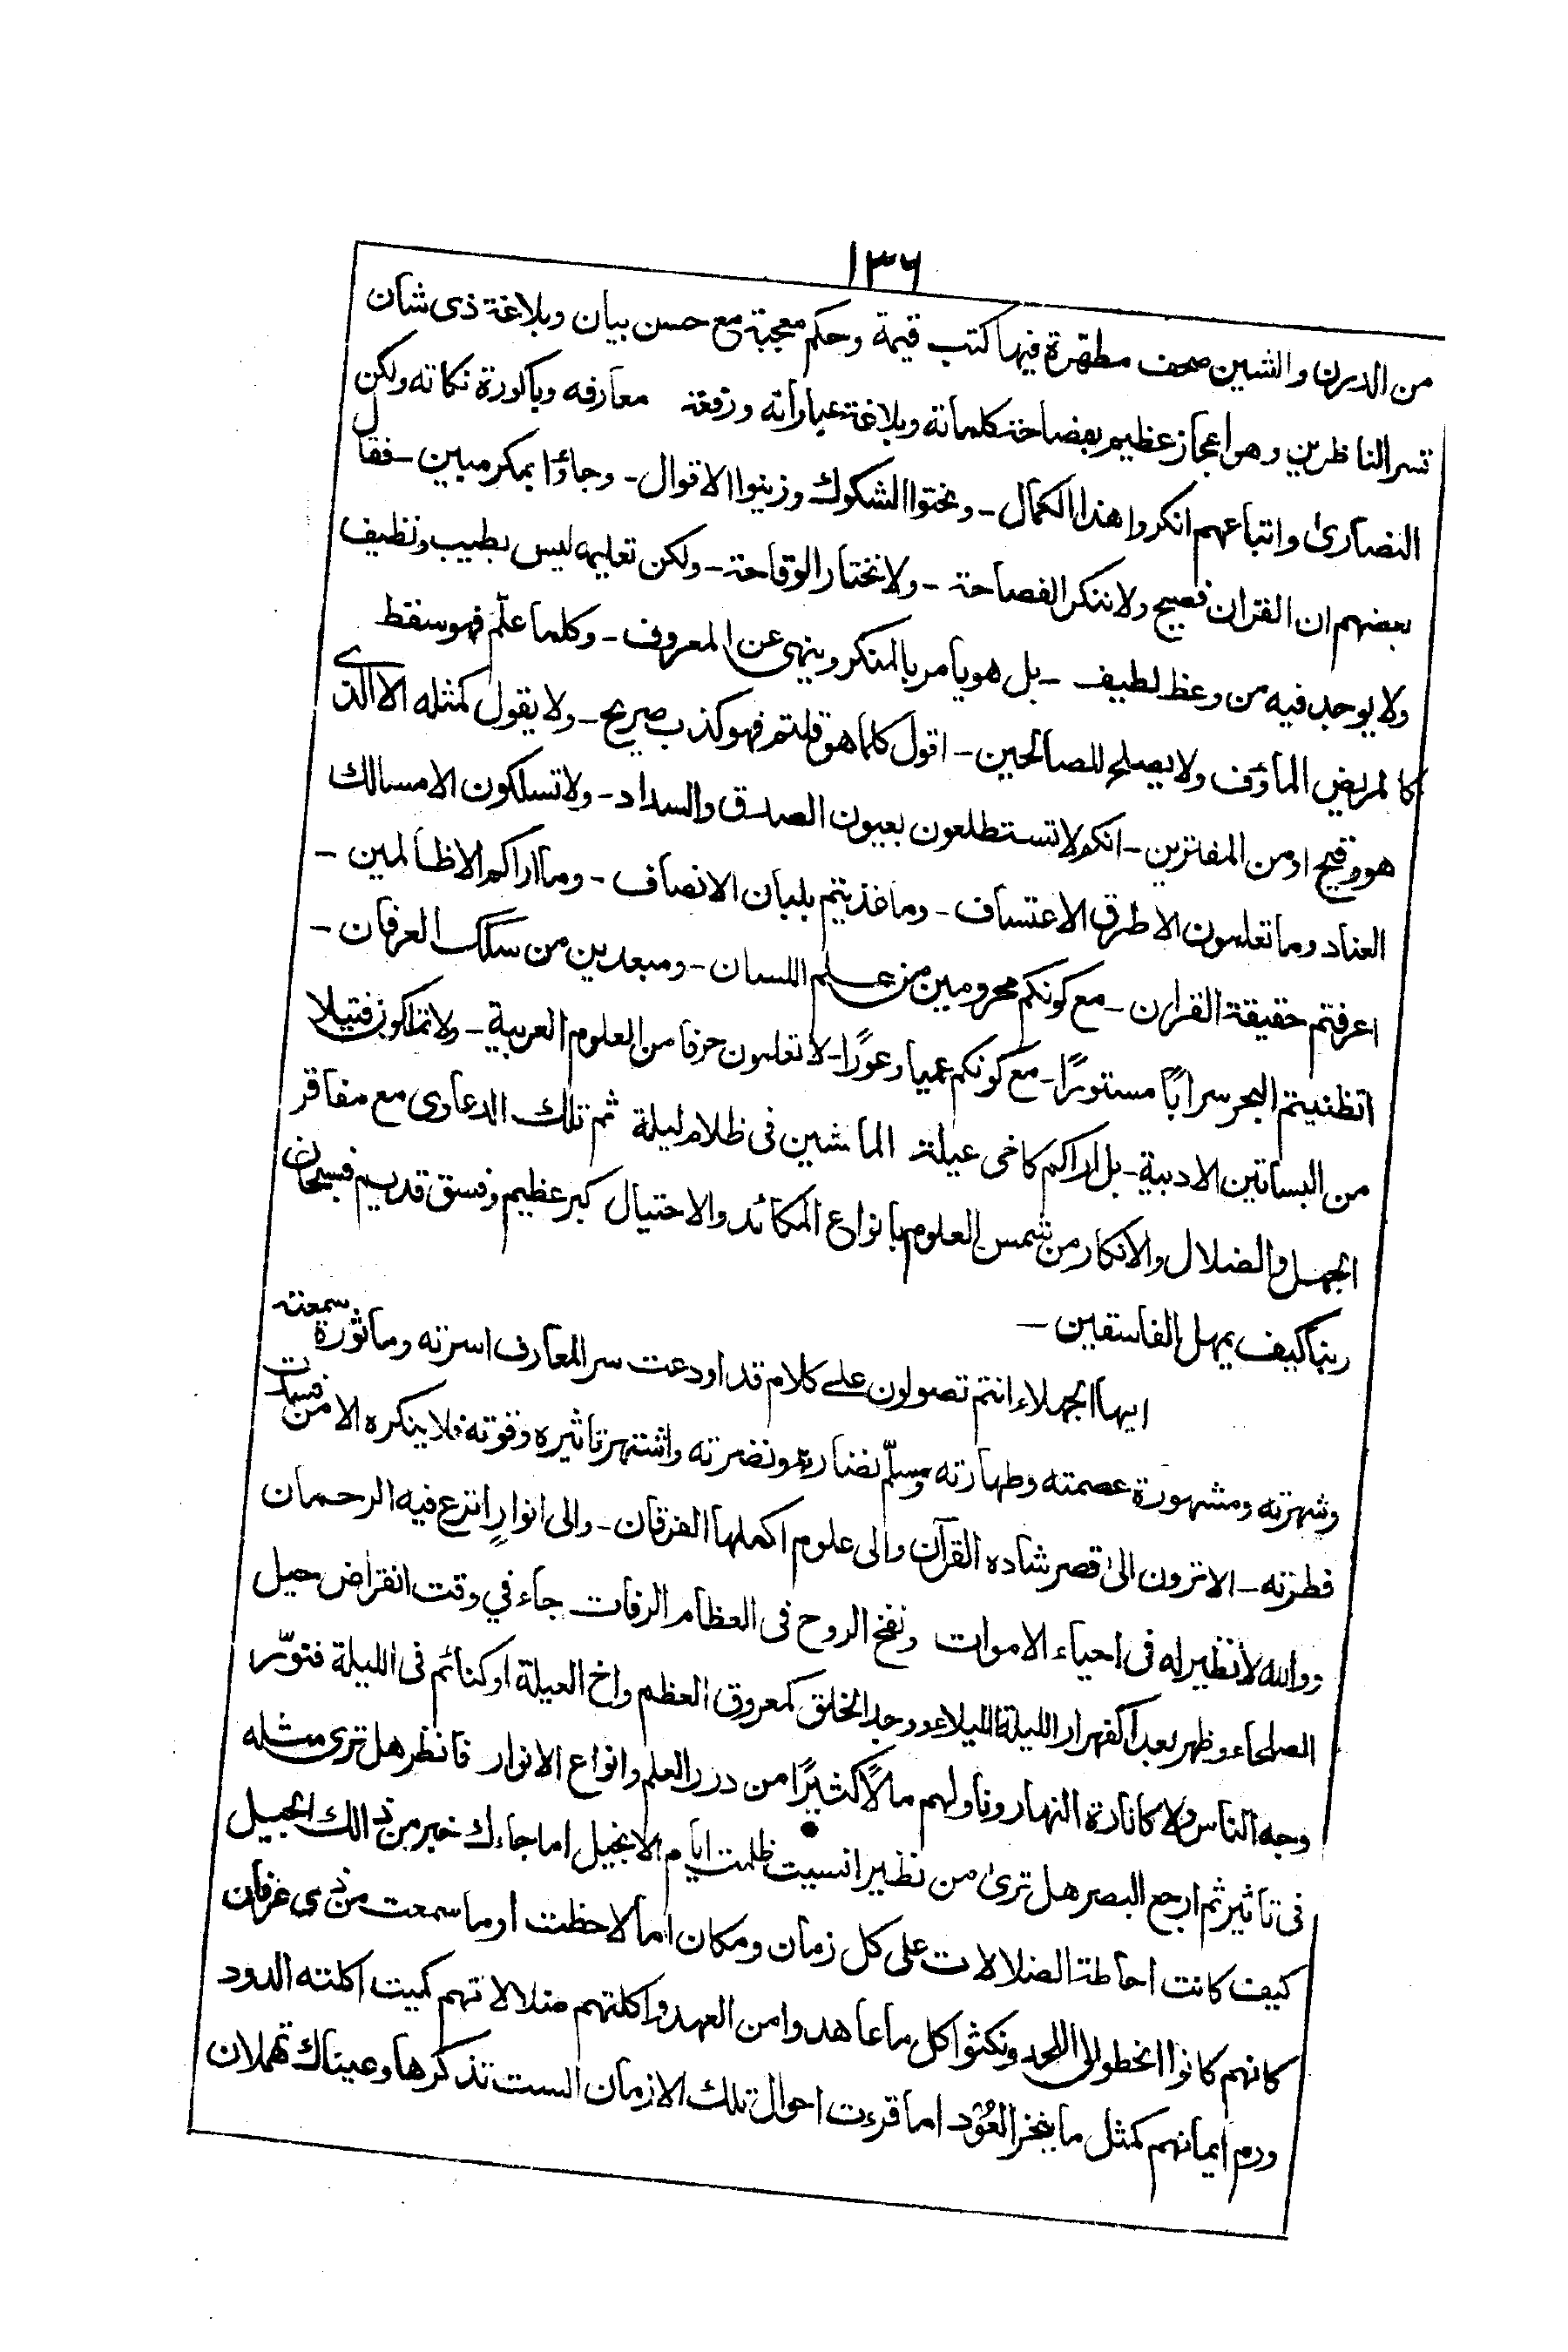 ١٣٦
من الدرن والشين صحف مطهّرة فيها كتب قيمة وحكم معجبة مع حسن بيان وبلاغة ذى شان
تسر الناظرين وهو اعجاز عظيم بفصاحة كلماته وبلاغة عباراته ورفعة معارفه وباكورة نكاته ولكن
النصارىٰ واتباعهم انكروا هذا الكمال - ونحتوا الشكوك وزينوا الاقوال - وجاؤا بمكر مبين - فقال
بعضهم ان القران فصيح ولا ننكر الفصاحة - ولا نختار الوقاحة - ولكن تعليمه ليس بطيب ونظيف
ولا يوجد فيه من وعظ لطيف - بل هو يامر بالمنكر وينهى عن المعروف - وكلما علّم فهو سقط
كالمريض المأوف ولا يصلح للصالحين - اقول كلما هو قلتم فهو كذب صريح - ولا يقول كمثله الا الذى
هو وقيح او من المفترين - انكم لا تستطلعون بعيون الصدق والسداد - ولا تسلكون الا مسالك
العناد وما تعلمون الا طرق الاعتساف - وما غذيتم بلبان الانصاف - وما اراكم الا ظالمين -
اعرفتم حقيقة القران - مع كونكم محرومين من علم اللسان - ومبعدين من سكك العرفان -
اتظنيتم البحر سرابًا مستورًا - مع كونكم عميا وعورًا - لا تعلمون حرفا من العلوم العربية - ولا تملكون فتيلا
من البساتين الادبية - بل اراكم كاخى عيلة الماشين فى ظلام ليلة ثم تلك الدعاوى مع مفاقر
الجهل والضلال والانكار من شمس العلوم بانواع المكائد والاحتيال كبر عظيم وفسق قديم فسبحان
ربنا كيف يمهل الفاسقين -
ايها الجهلاء انتم تصولون على كلام قد اودعت سر المعارف اسرته وماثورة سمعته
وشهرته ومشهورة عصمته وطهارته ومسلّم نضارته ونضرته واشتهر تاثيره وقوته فلا ينكره الا من فسدت
فطرته - الا ترون الىٰ قصر شاده القرآن والى علوم اكملها الفرقان - والى انوارٍ اترع فيه الرحمان
ووالله لا نظير له فى احياء الاموات ونفخ الروح فى العظام الرفات جاء في وقت انقراض حيل
الصلحاء وظهر بعد اكفهرار الليلة الليلاء ووجد الخلق كمعروق العظم واخ العيلة او كنائم فى الليلة فنوّر
وجه الناس ولا كانارة النهار وناولهم مالًا كثيرًا من درر العلم وانواع الانوار فانظر هل ترى مثله
فى تاثير ثم ارجع البصر هل ترىٰ من نظير انسيت ظلمت ايام الانجيل اما جاءك خبر من ذالك الجيل
كيف كانت احاطة الضلالات على كل زمان ومكان اما لاحظت او ما سمعت من ذى عرفان
كانهم كانوا انخطوا الى اللحد ونكثوا كل ما عاهدوا من العهد واكلتهم ضلالاتهم كميت اكلته الدود
ورم ايمانهم كمثل ما ينخر العُوْد اما قرءت احوال تلك الازمان الست تذكرها وعيناك تهملان